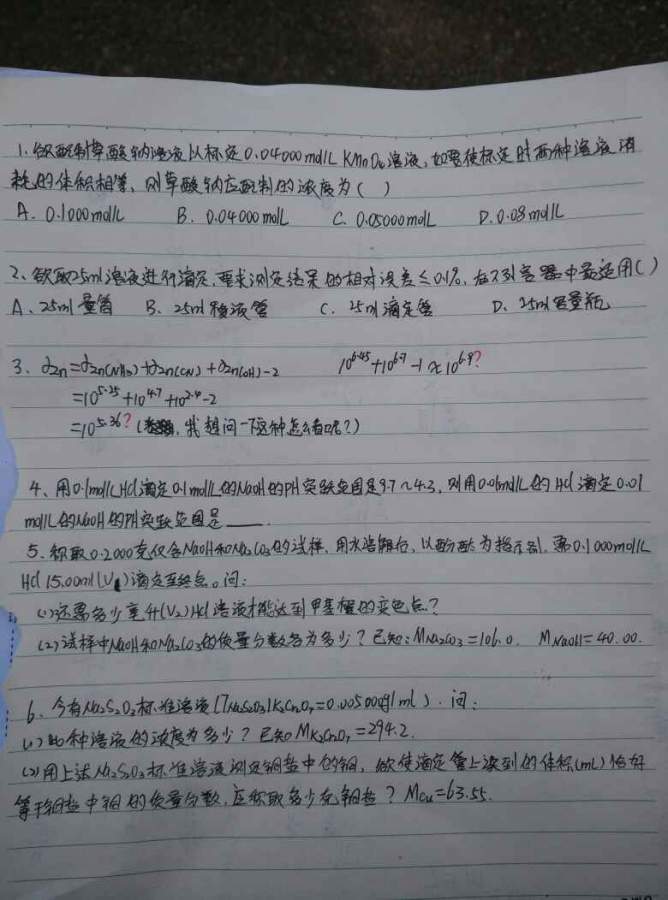 1. 欲配制草酸钠溶液以标定0.04000mol/L KMnO4溶液,如要使标定时两种溶液消
耗的体积相等,则草酸钠应配制的浓度为( )
A. 0.1000mol/L B. 0.04000mol/L C. 0.05000mol/L D. 0.08mol/L
2、欲取25ml溶液进行滴定,要求测定结果的相对误差≤0.1%,在下列容器中最适用( )
A、25ml量筒 B、25ml移液管 C、25ml滴定管 D、25ml容量瓶
3、αzn=αzn(NH3)+αzn(CN)+αzn(OH)-2 10^6.45+10^6.7-1≈10^6.9?
=10^5.25+10^4.7+10^2.4-2
=10^5.36?( 我想问一下这种怎么看呢?)
4、用0.1mol/LHCl滴定0.1mol/L的NaOH的PH突跃范围是9.7~4.3,则用0.01mol/L的HCl滴定0.01
mol/L的NaOH的PH突跃范围是____.
5、称取0.2000克仅含NaOH和Na2CO3的试样,用水溶解后,以酚酞为指示剂,需0.1000mol/L
HCl 15.00ml(V1)滴定至终点。问:
(1)还需多少毫升(V2)HCl溶液才能达到甲基橙的变色点?
(2)试样中NaOH和Na2CO3的质量分数各为多少?已知:MNa2CO3=106.0. MNaOH=40.00.
6、今有Na2S2O3标准溶液(TNa2S2O3/K2Cr2O7=0.00500g/ml). 问:
(1)此种溶液的浓度为多少?已知MK2Cr2O7=294.2.
(2)用上述Na2S2O3标准溶液测定铜盐中的铜,欲使滴定管上读到的体积(mL)恰好
等于铜盐中铜的质量分数,应称取多少克铜盐? MCu=63.55.